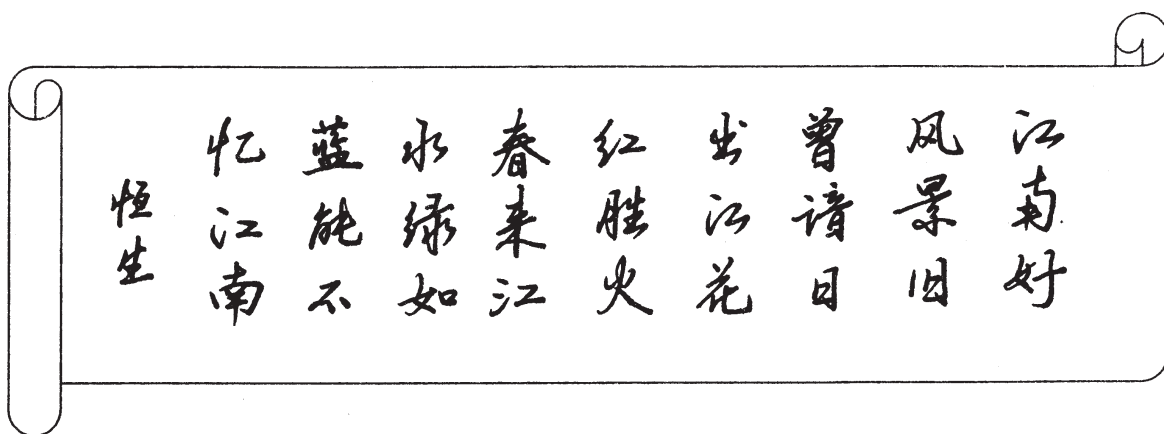 江南好
风景旧
曾谙日
出江花
红胜火
春来江
水绿如
蓝能不
忆江南
恒生